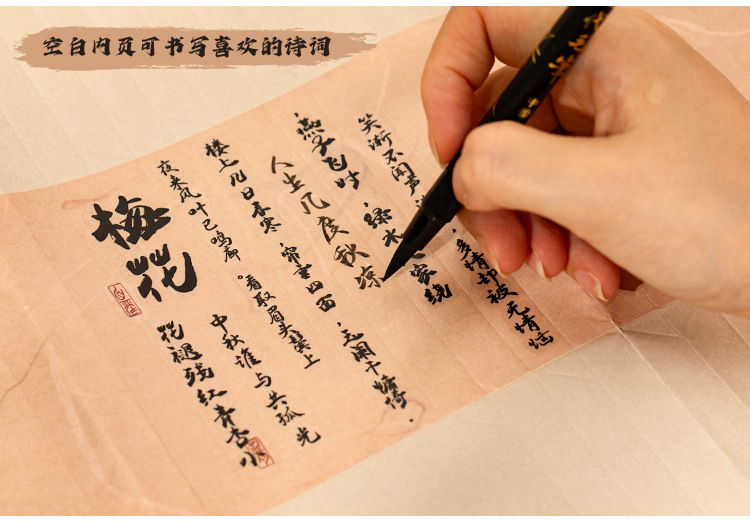 空白内页可书写喜欢的诗词
笑渐不闻声 ，多情却被无情恼
燕子飞时，绿水 家绕
人生几度秋凉
楼上几日春寒，帘垂四面，玉阑干慵倚。
夜来风叶已鸣廊。看取眉头鬓上
中秋谁与共孤光
花褪残红青杏小
梅花